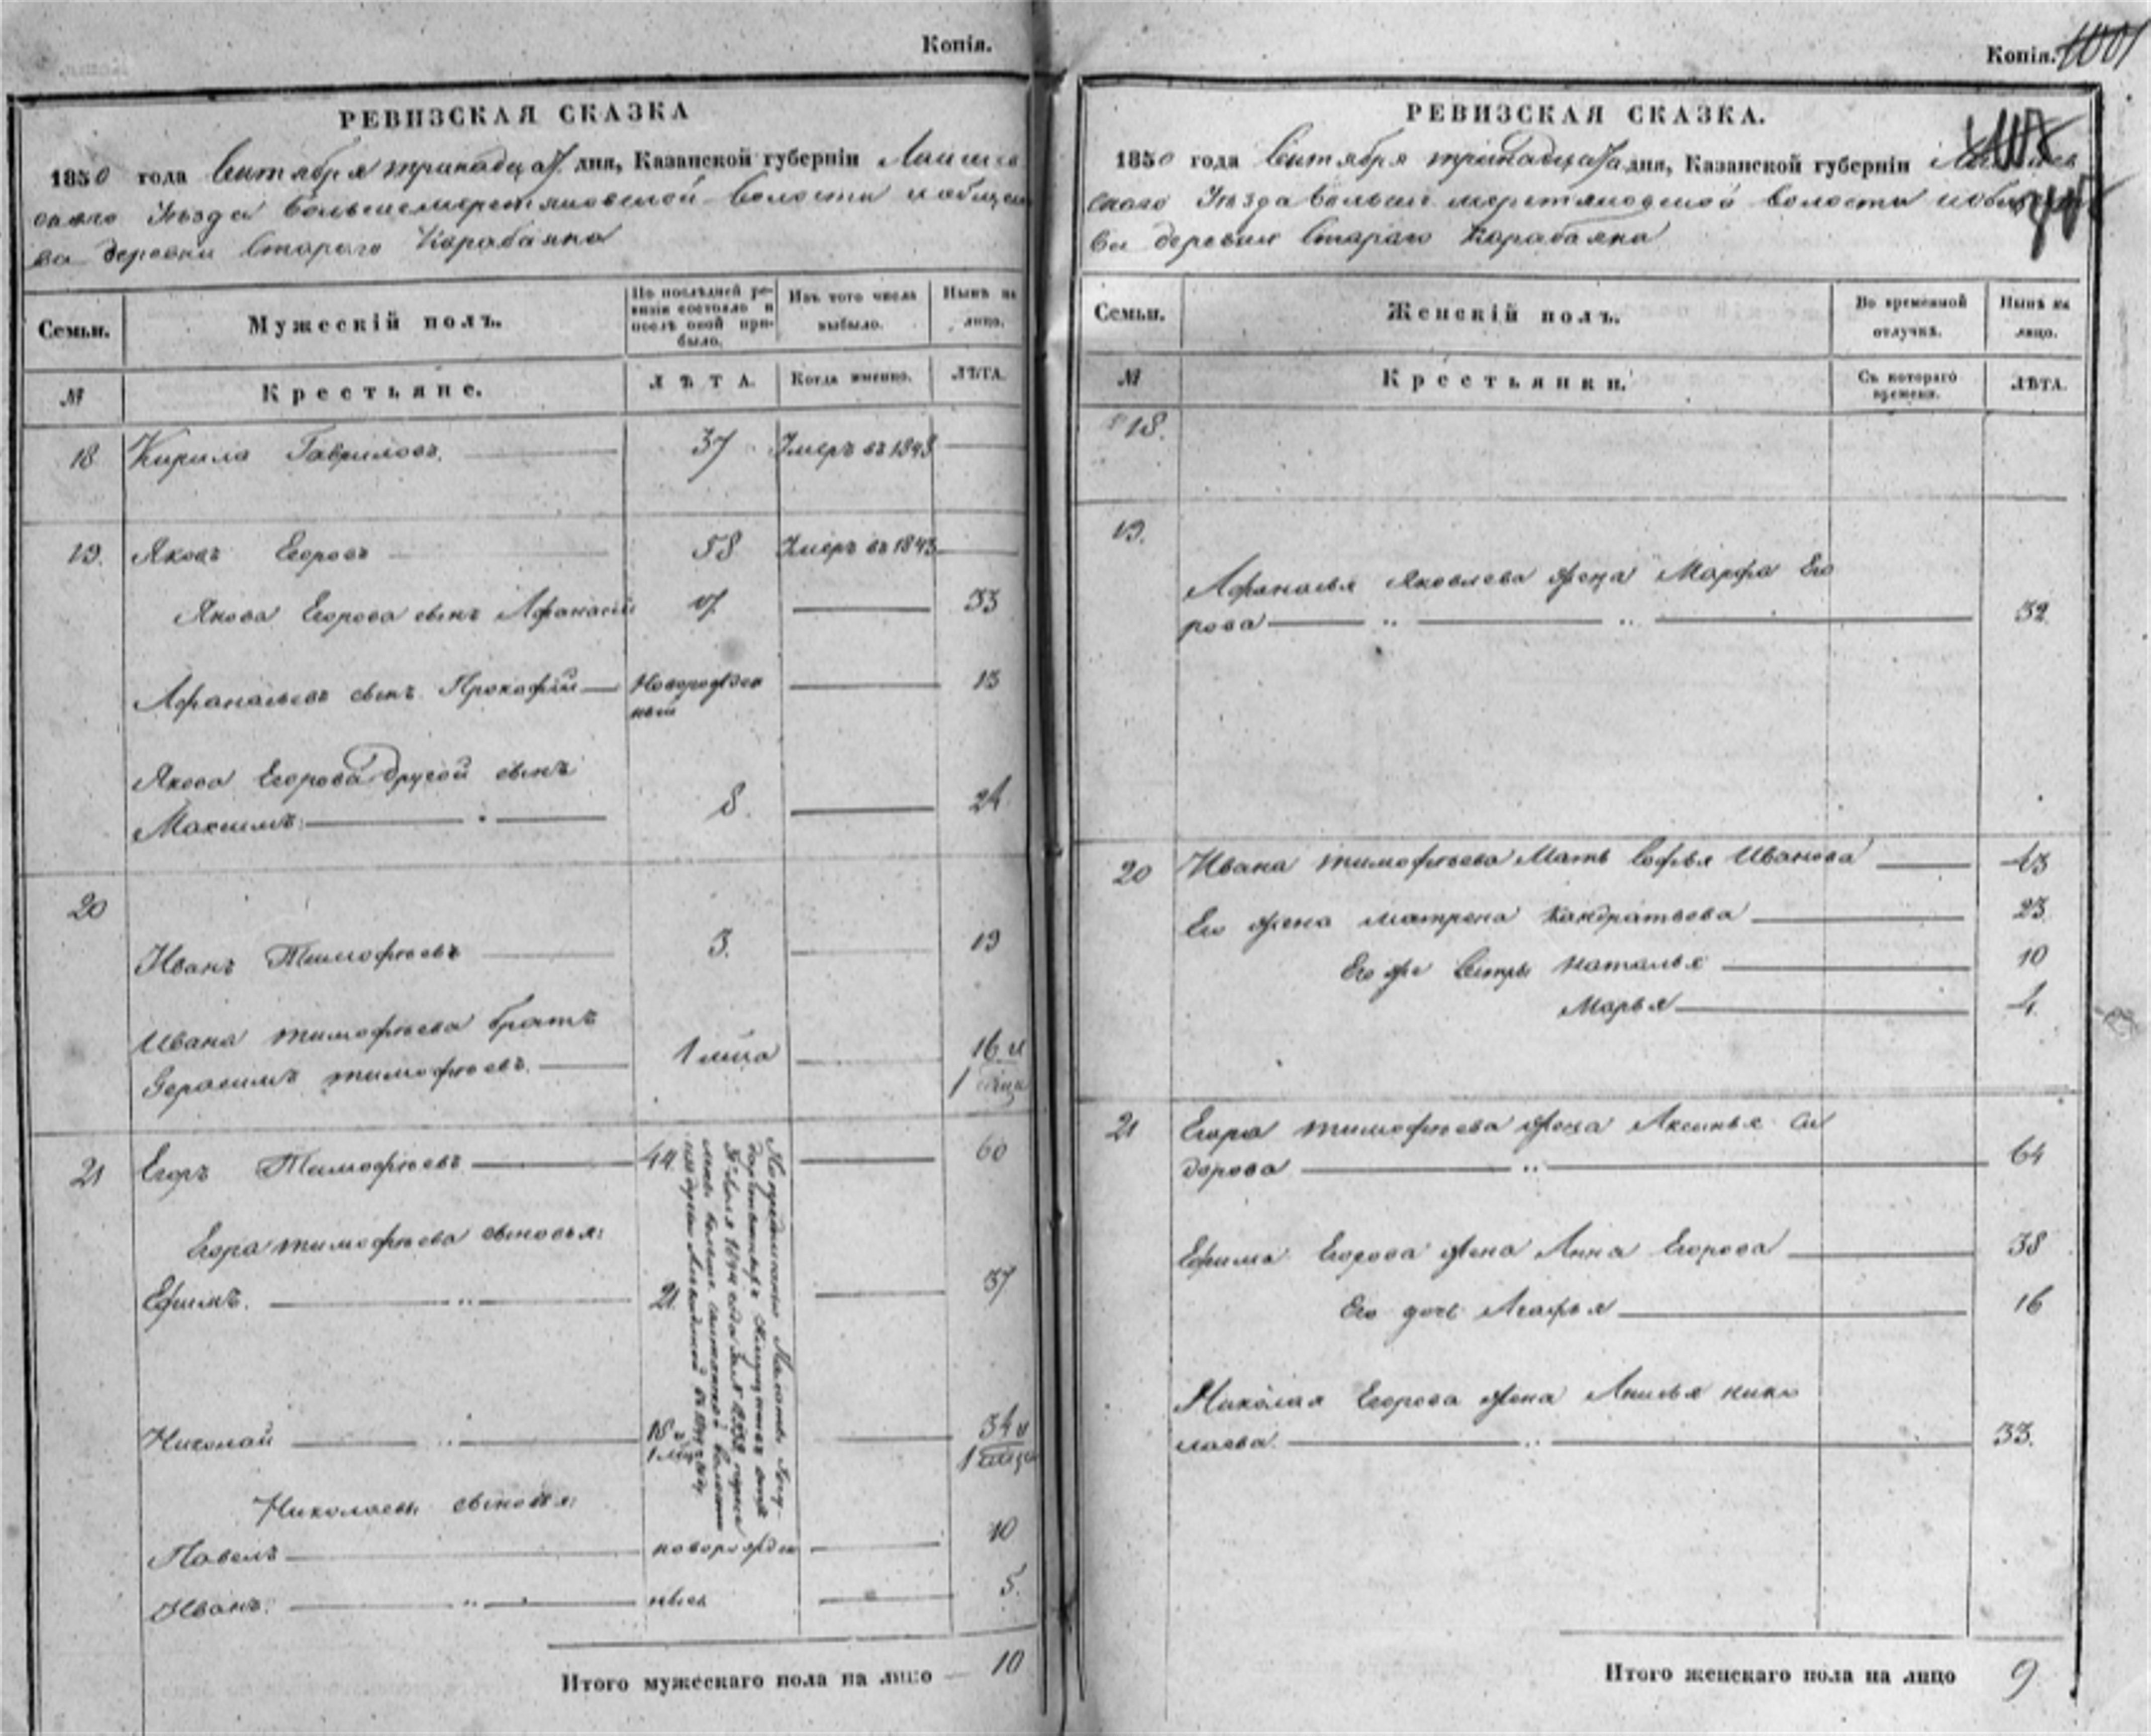 Копія.
РЕВИЗСКАЯ СКАЗКА
1850 года Сентября тринадцат. дня, Казанской губерніи Лаишев
скаго Уѣзда Большемеретяковской Волости и общест
ва деревни Стараго Карабаяна
Семьи. Мужескій полъ. По послѣдней ре-
визіи состояло и
послѣ оной при-
было. Изъ того числа
выбыло. Нынѣ на
лицо.
№ Крестьяне. ЛѢТА. Когда именно. ЛѢТА.
18 Кирила Гавриловъ. 37 Умеръ въ 1848
19. Яковъ Егоровъ 58 Умеръ въ 1843
Якова Егорова сынъ Афанасій 17. 33
Афанасьевъ сынъ Прокофій Новорожден
ный 13
Якова Егорова другой сынъ
Максимъ 8. 24
20
Иванъ Тимофѣевъ 3. 19
Ивана Тимофѣева братъ
Герасимъ Тимофѣевъ. 1 мѣсяца 16 и
1 мѣсяц
21 Егоръ Тимофѣевъ 44 60
Егора Тимофѣева сыновья:
Ефимъ. 21 37
Николай 18 и
1 мѣс 34 и
1 мѣсяц
Николаевы сыновья:
Павелъ новорожден 10
Иванъ. ные 5.
Итого мужескаго пола на лицо 10
Копія. 1001
РЕВИЗСКАЯ СКАЗКА.
1850 года Сентября тринадцата дня, Казанской губерніи Лаишев
скаго Уѣзда Больше меретяковской волости и общест
ва деревни Стараго Карабаяна
Семьи. Женскій полъ. Во временной
отлучкѣ. Нынѣ на
лицо.
№ Крестьянки. Съ котораго
времени. ЛѢТА.
18.
19.
Афанасья Яковлева жена Марфа Его
рова 32.
20 Ивана Тимофѣева Мать Софья Иванова 43
Его жена Матрена Кандратьева 23
Его же Сестры Наталья 10
Марья 4
21 Егора Тимофѣева жена Аксинья Си
дорова 64
Ефима Егорова жена Анна Егорова 38
Его дочь Агафья 16
Николая Егорова жена Анисья Нико
лаева. 33.
Итого женскаго пола на лицо 9